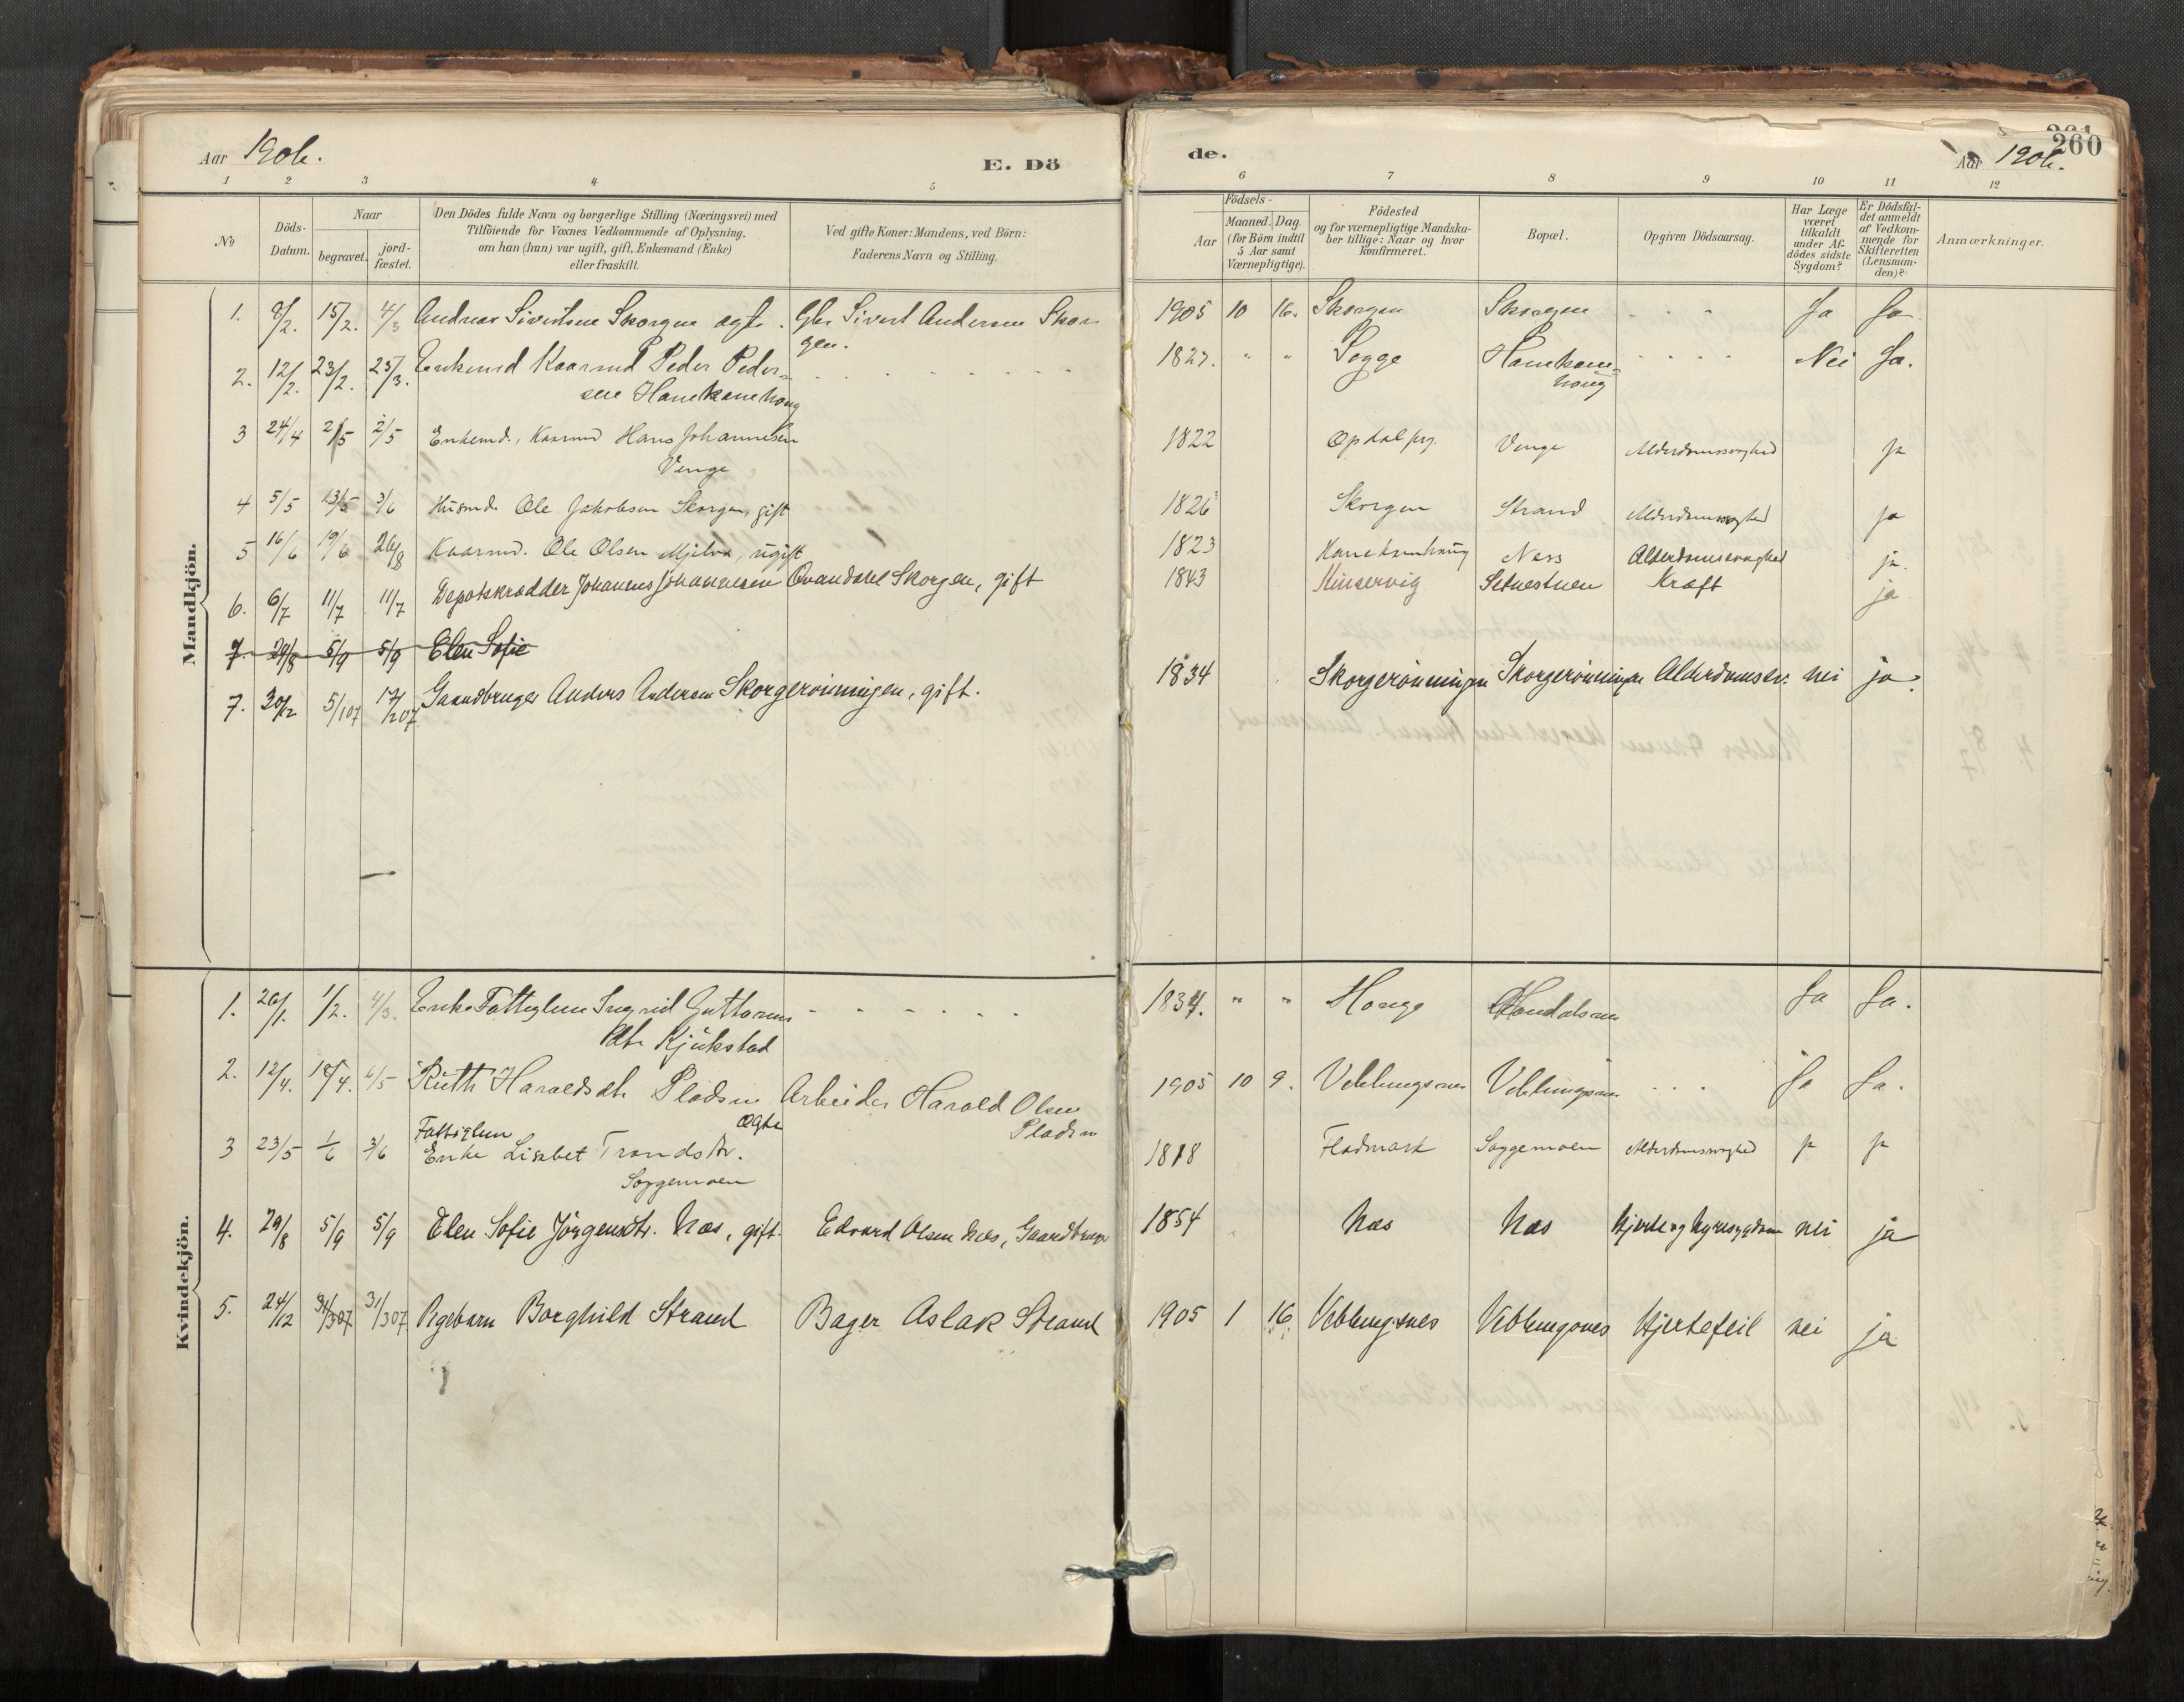 Aar 1906.
E. Dö
de.
261
260
Aar 1906.
1 2 3 4 5 6 7 8 9 10 11 12
№
Döds-Datum.
Naar
begravet. jord-fæstet.
Den Dödes fulde Navn og borgerlige Stilling (Næringsvei) med
Tilföiende for Voxnes Vedkommende af Oplysning,
om han (hun) var ugift, gift, Enkemand (Enke)
eller fraskilt.
Ved gifte Koner: Mandens, ved Börn:
Faderens Navn og Stilling.
Födsels-
Aar
Maaned. Dag.
(for Börn indtil
5 Aar samt
Værnepligtige).
Födested
og for værnepligtige Mandska-
ber tillige: Naar og hvor
konfirmeret.
Bopæl.
Opgiven Dödsaarsag.
Har Læge
været
tilkaldt
under Af-
dödes sidste
Sygdom?
Er Dödsfal-
det anmeldt
af Vedkom-
mende for
Skifteretten
(Lensman-
den)?
Anmærkninger.
Mandkjön.
1. 8/2. 15/2. 4/3 Andreas Sivertsen Skorgen ægte. Gbr Sivert Andersen Skor
gen.
1905 10 16. Skorgen Skorgen Ja Ja
2. 12/2. 23/2. 25/3. Enkemd Kaarmd Peder Peder-
sen Hanekamhoug
1827. " " Sogge Hanekam-
houg
Nei Ja.
3 24/4 2/5 2/5 Enkemd., Kaarmd Hans Johannesen
Venge
1822 Opdal prg. Venge Alderdomssvaghed ja
4 5/5 13/5 3/6 Husmd. Ole Jakobsen Skorgen, gift
1826 Skorgen Strand Alderdomssvaghed ja
5 16/6 19/6 26/8 Kaarmd. Ole Olsen Mjelva, ugift
1823 Hanekamhaug Ness Alderdomssvaghed ja.
6. 6/7 11/7 11/7 Depotskrædder Johannes Johannesen Ovandahl Skorgen, gift
1843 Kinservig Setnestuen Kræft ja
7. 29/8 5/9 5/9 Elen Sofie
7. 30/12 5/1 07 17/2 07 Gaardbruger Anders Andersen Skorgerönningen, gift.
1834 Skorgerönningen Skorgerönningen Alderdomssv. nei ja.
Kvindekjön.
1. 26/1. 1/2. 4/3. Enke Fattiglem Ingrid Guttorms
dtr Kjukstad
1834. " " Houge Ja Ja.
2. 12/4. 18/4. 6/5 Ruth Haraldsdtr Pladsen Arbeider Harald Olsen
ægte Pladsen
1905 10 9. Veblungsnes Veblungsnes Ja Ja.
3 23/5 1/6 3/6 Fattiglem
Enke Lisabet Trondsdtr.
Soggemoen
1818 Fladmark Soggemoen Alderdomssvaghed ja ja
4. 29/8 5/9 5/9 Elen Sofie Jörgensdtr. Næs, gift. Edvard Olsen Næs, Gaardbruger
1854 Næs Næs Hjerte og Nyresygdom nei ja
5. 24/12 31/3 07 31/3 07. Pigebarn Borghild Strand Bager Aslak Strand
1905 1 16 Veblungsnes Veblungsnes Hjertefeil nei ja